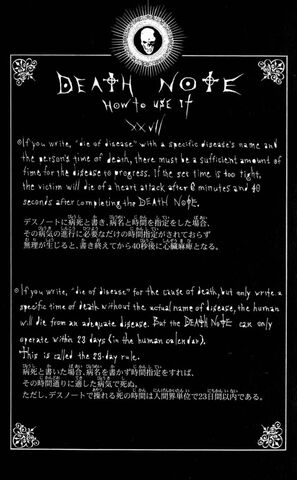 DEATH NOTE
HOW TO USE IT
XXVII
If you write, "die of disease" with a specific disease's name and
the person's time of death, there must be a sufficient amount of
time for the disease to progress. If the set time is too tight,
the victim will die of a heart attack after 6 minutes and 40
seconds after completing the DEATH NOTE.
デスノートに病死と書き、病名と時間を指定をした場合、
その病気の進行に必要なだけの時間指定がされておらず
無理が生じると、書き終えてから40秒後に心臓麻痺となる。
If you write, "die of disease" for the cause of death, but only write a
specific time of death without the actual name of disease, the human
will die from an adequate disease. But the DEATH NOTE can only
operate within 23 days (in the human calendar).
This is called the 23-day rule.
病死と書いた場合、病名を書かず時間指定をすれば、
その時間通りに適した病気で死ぬ。
ただし、デスノートで操れる死の時間は人間界単位で23日間以内である。